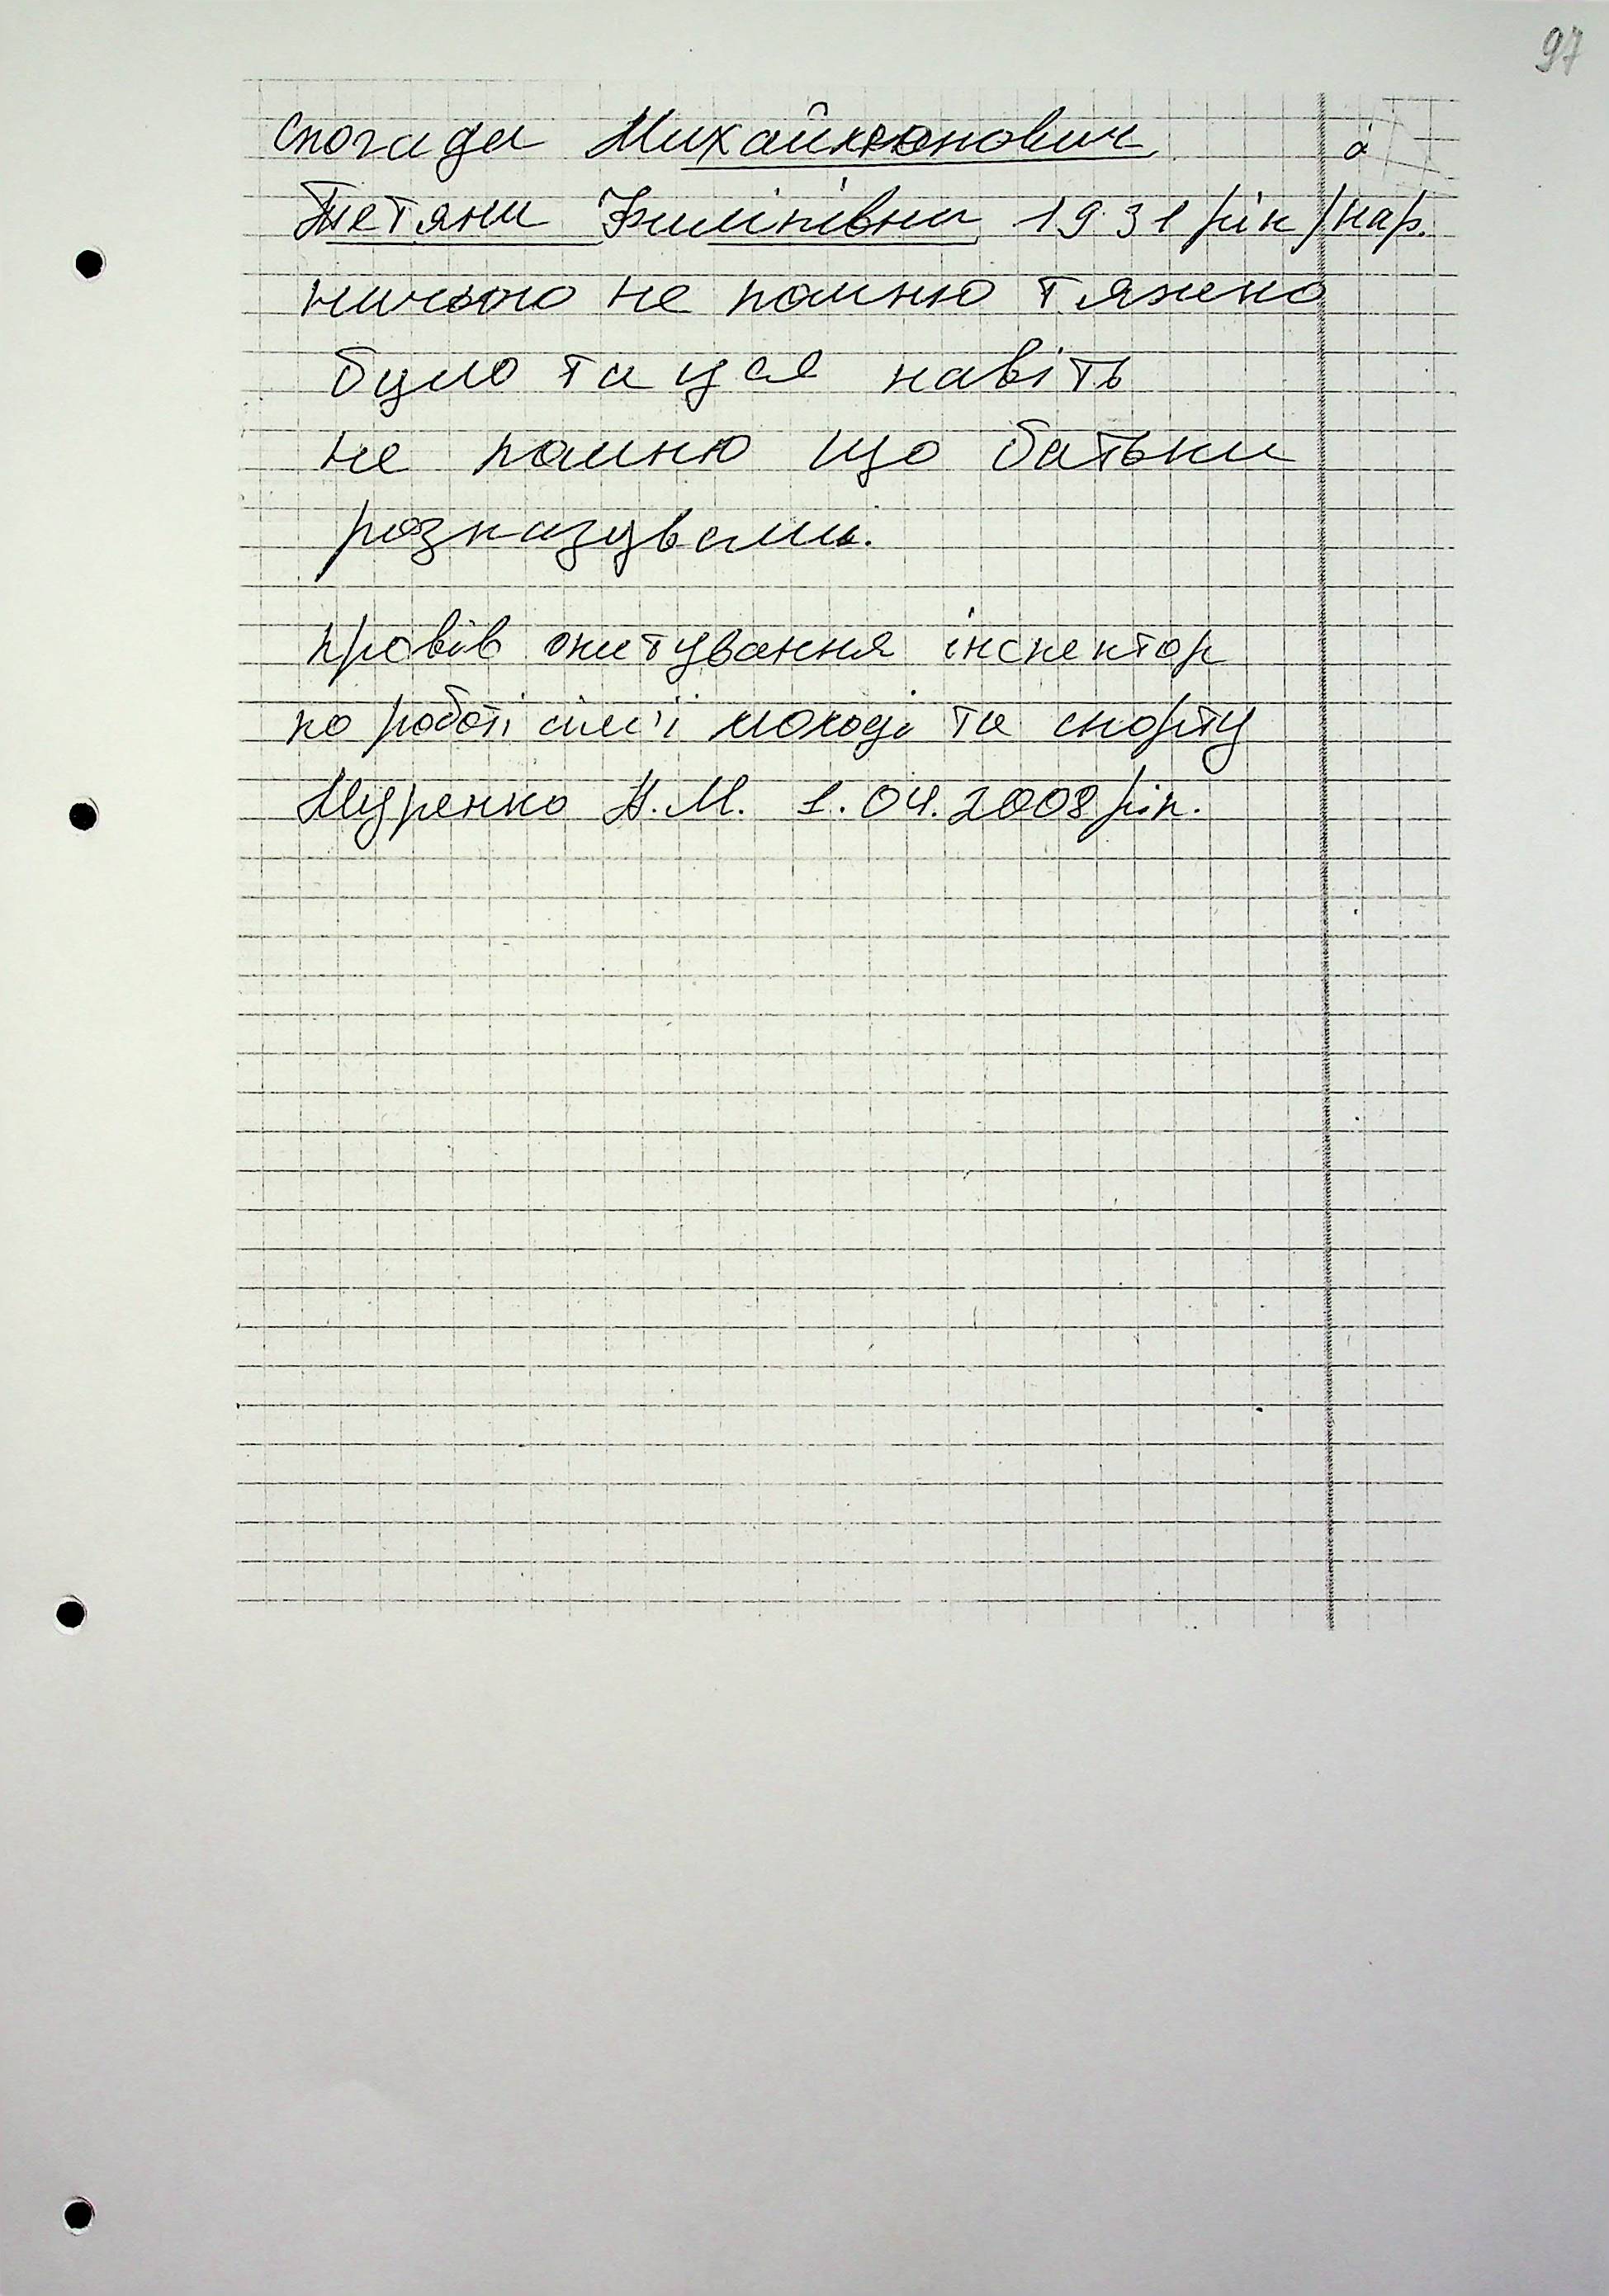 97
Спогади Михайлюнович
Тетяни Филіпівни 1931 рік/нар.
ничого не помню тяжко
було та уся навіть
не помню що батьки
розказували.
провів опитування інспектор
по роботі сім'ї молоді та спорту
Муренко Н.М. 1.04.2008 рік.